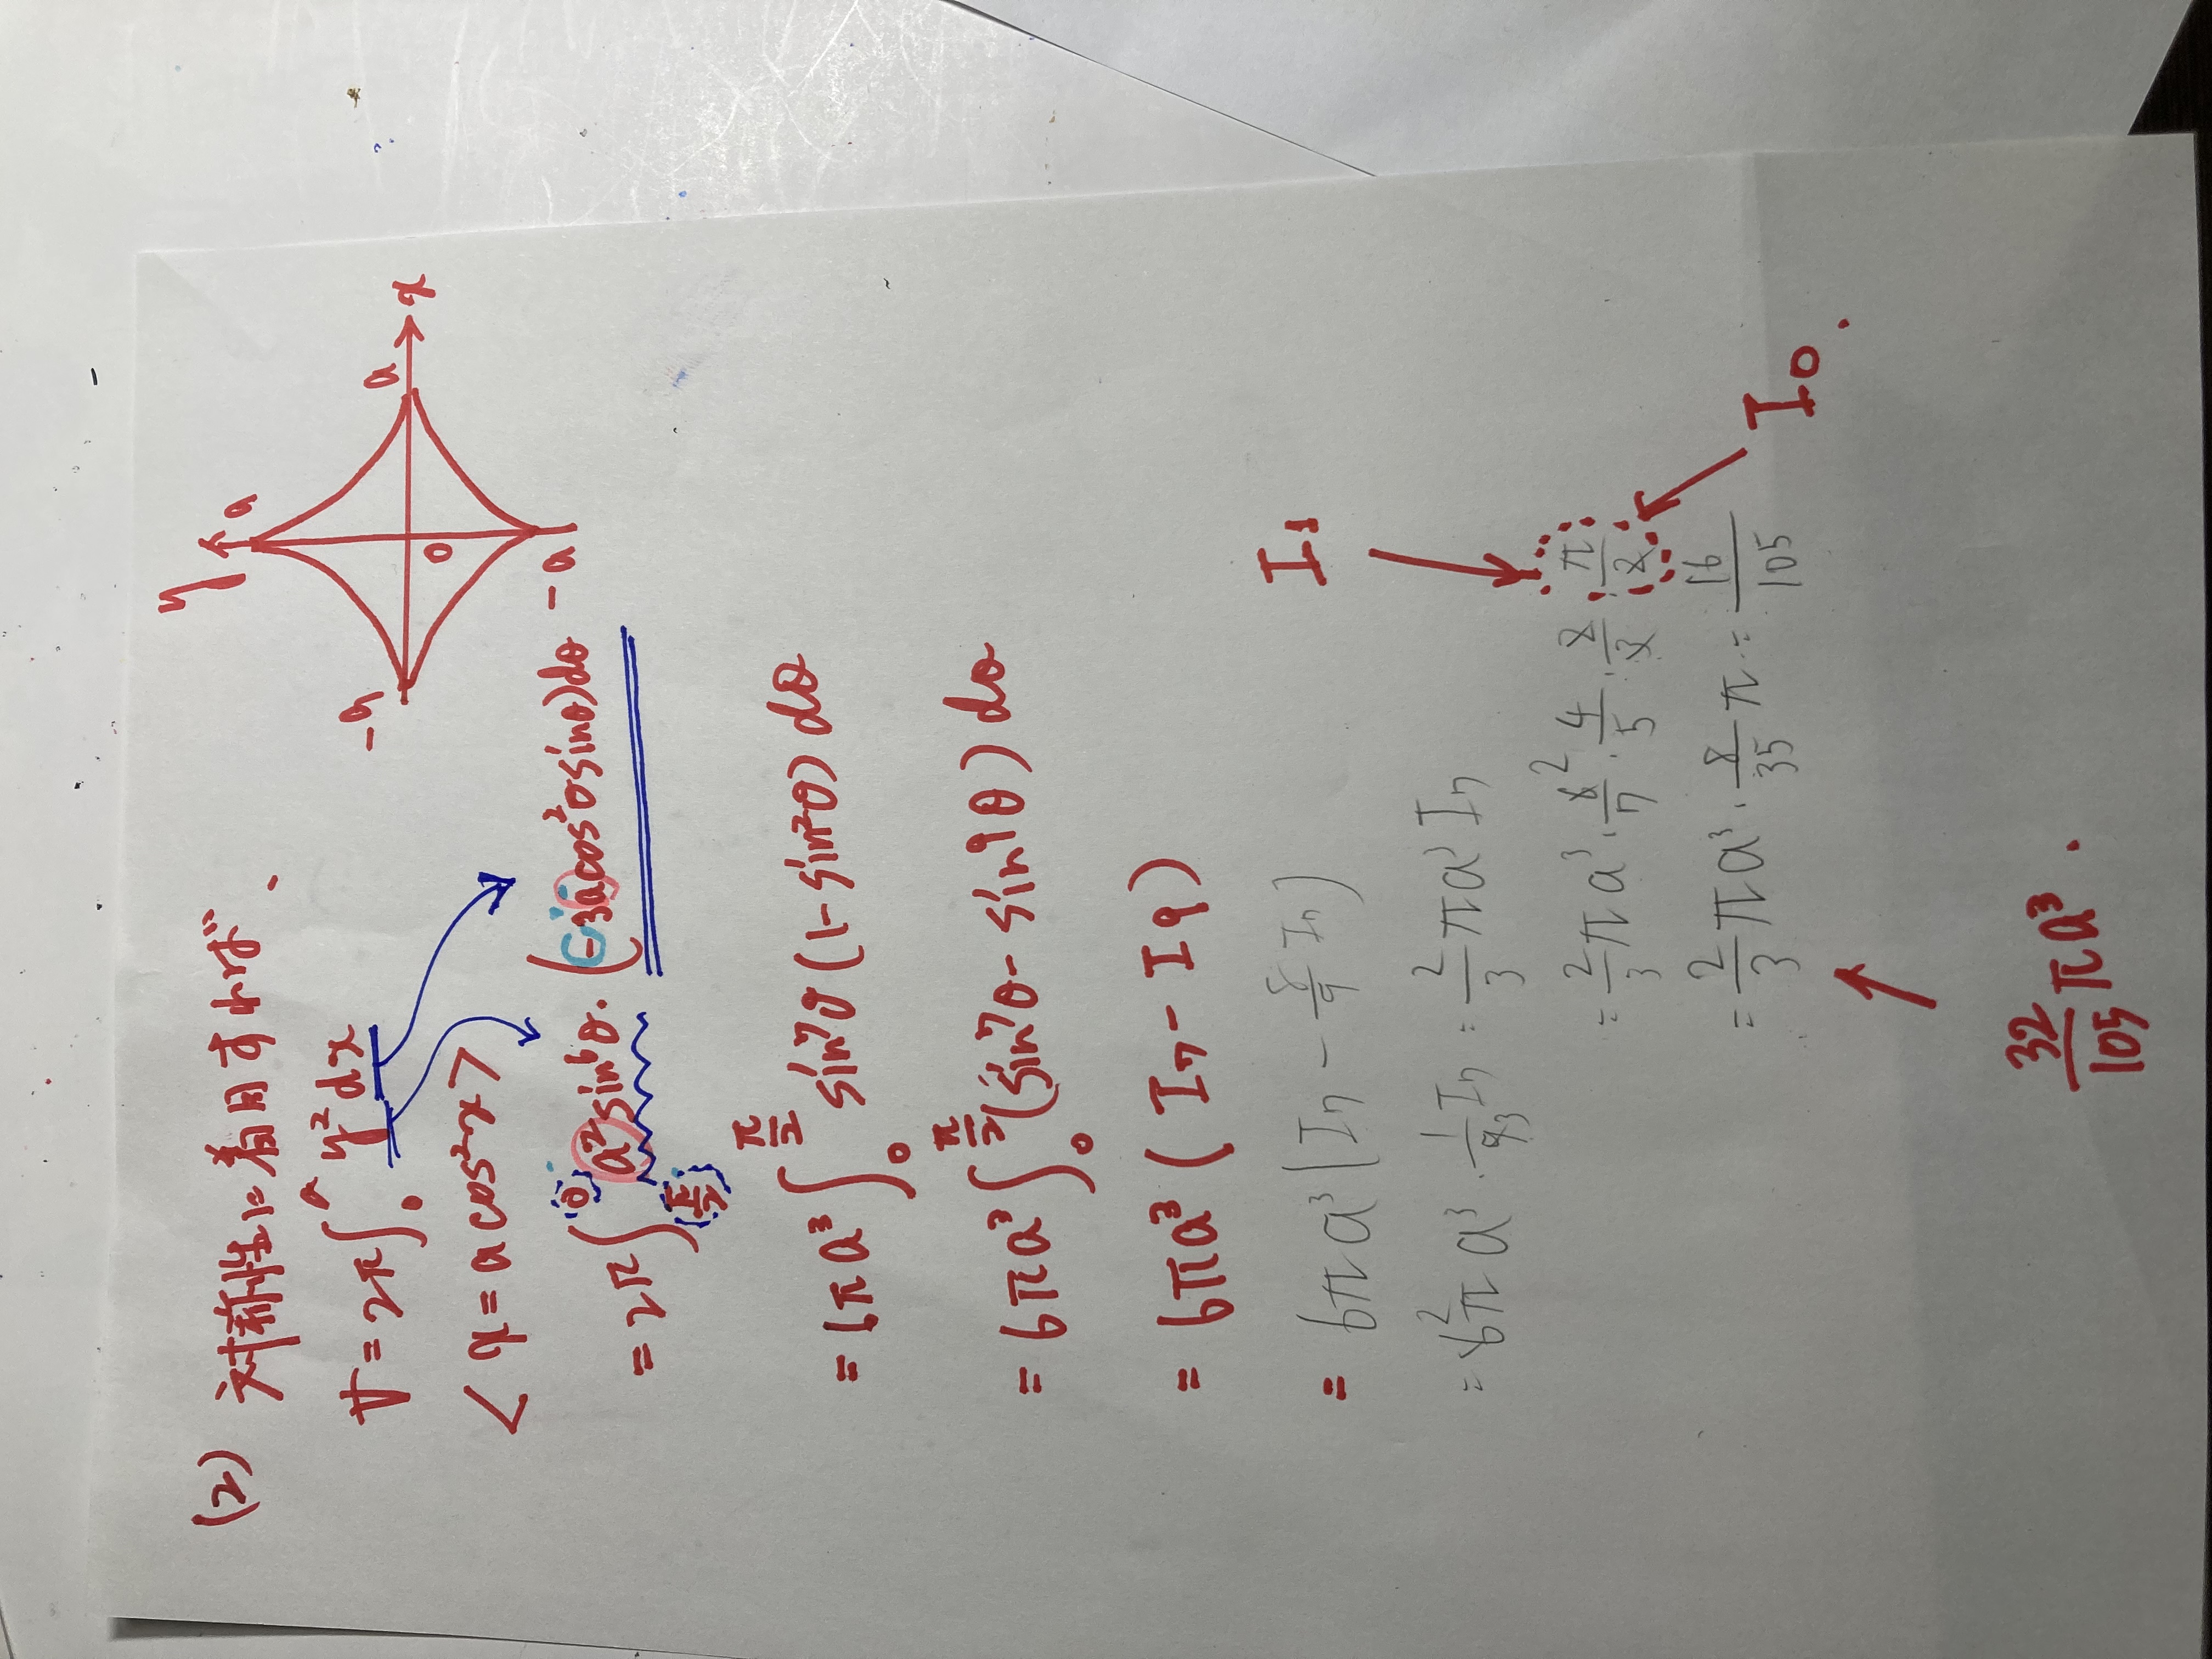 (2) 対称性に着目すれば、
V = 2π∫₀ᵃ y² dx
< x = a cos³x >
= 2π∫_{π/2}^{0} a² sin⁶θ・(-3a cos²θ sinθ)dθ
y
a
-a
O
a
x
-a
= 6πa³∫₀^{π/2} sin⁷θ (1 - sin²θ) dθ
= 6πa³∫₀^{π/2} (sin⁷θ - sin⁹θ) dθ
= 6πa³ (I₇ - I₉)
= 6πa³ (I₇ - 8/9 I₇)
= 6 2 πa³ · 1/9 3 I₇ = 2/3 πa³ I₇
I₁
= 2/3 πa³ · 6 2/7 · 4/5 · 2/3 · π/2
I₀.
= 2/3 πa³ · 8/35 π = 16/105
32/105 πa³.